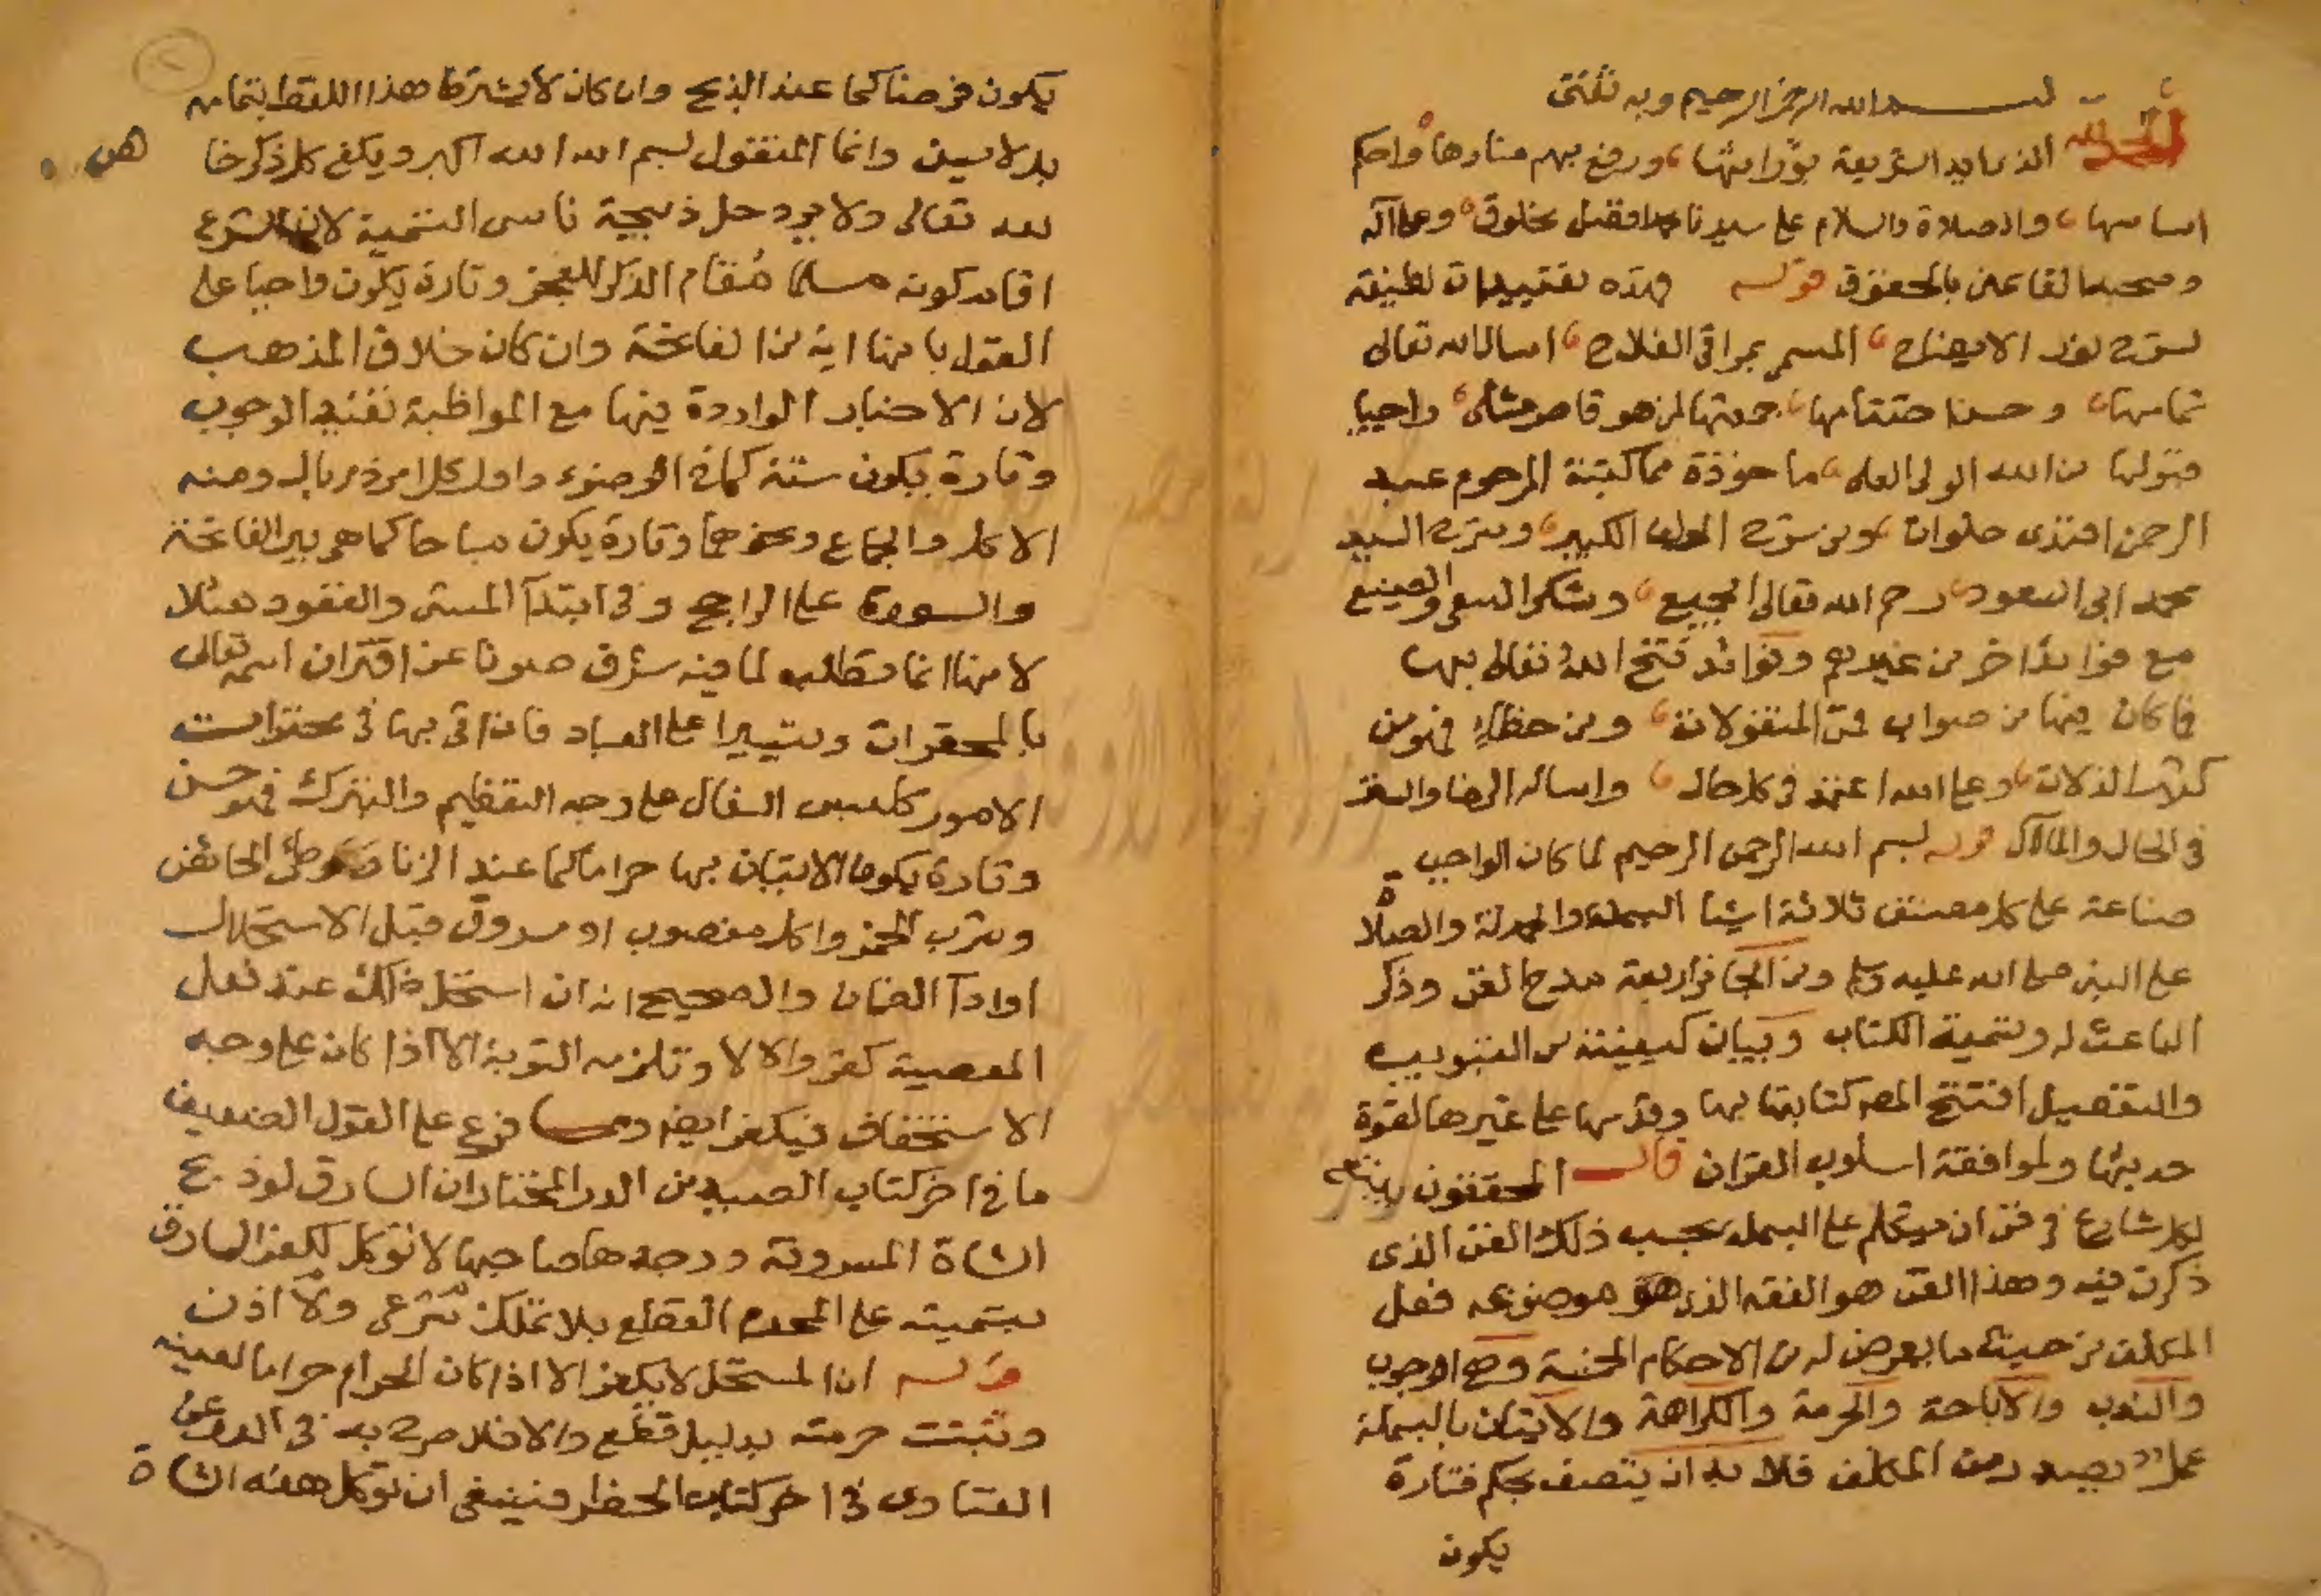 بسم الله الرحمن الرحيم وبه ثقتي
الحمد لله الذي ايد الشريعة بوراثها ورفع بهم منارها واحكم
اساسها والصلاة والسلام على سيدنا محمد افضل مخلوق وعلى آله
وصحبه القائمين بالحقوق فهذه تقييدات لطيفة
لشرح نور الايضاح المسمى بمراقي الفلاح اسال الله تعالى
تمامها وحسن ختامها جمعتها لمن هو قاصر مثلى راجيا
قبولها من الله الولي العلى ماخوذة مما كتبه المرحوم عبد
الرحمن افندى خلوات ومن شرح المولف الكبير وشرح السيد
محمد ابى السعود رحم الله تعالى الجميع وشكر السعى والصنيع
مع فوائد اخر من غيرهم وفوائد فتح الله تعالى بها
فما كان فيها من صواب فمن المنقولات ومن خطاء فهو من
كثير الزلات وعلى الله اعتمد في كل حال واساله الرضا والستر
في الحال والمآل قوله بسم الله الرحمن الرحيم لما كان الواجب
صناعة على كل مصنف ثلاثة اشيا البسملة والحمدلة والصلاة
على النبي صلى الله عليه وسلم ومن الجائز اربعة مدح الفن وذكر
الباعث له وتسمية الكتاب وبيان كيفيته من التبويب
والتفصيل افتتح المصـ كتابته بها وقدمها على غيرها لقوة
حديثها ولموافقة اسلوب القران قال المحققون ينبغى
لكل شارع في فن ان يتكلم على البسملة بحسب ذلك الفن الذى
ذكرت فيه وهذا الفن هو الفقه الذى هو موضوعه فعل
المكلف من حيث ما يعرض له من الاحكام الخمسة وهى الوجوب
والندب والاباحة والحرمة والكراهة والاتيان بالبسملة
عمل يصدر من المكلف فلا بد ان يتصف بحكم فتارة
يكون
يكون فرضا كما عند الذبح وان كان لا يشترط هذا اللفظ بتمامه
بل لا يسن وانما المنقول بسم الله الله اكبر ويكفى كل ذكر خا
لله تعالى ولا يرد حل ذبيحة ناسى التسمية لان الشرع
اقام كونه مسلما مقام الذكر للعجز وتارة يكون واجبا على
القول بانها اية من الفاتحة وان كان خلاف المذهب
لان الاخبار الواردة فيها مع المواظبة تفيد الوجوب
وتارة يكون سنة كما في الوضوء واول كل امر ذى بال ومنه
الاكل والجماع ونحوهما وتارة يكون مباحا كما هى بين الفاتحة
والسورة على الراجح وفي ابتدآ المشى والقعود مثلا
لانها انما تطلب لما فيه شرف صونا عن اقتران اسمه تعالى
بالمحقرات وتيسيرا على العباد فان اتى بها في محقرات
الامور كلبس النعال على وجه التعظيم والتبرك فهو حسن
وتارة يكون الاتيان بها حراما كما عند الزنا ووطئ الحائض
وشرب الخمر واكل مغصوب او مسروق قبل الاستحلال
اوادآ الضمان والصحيح انه ان استحل ذلك عند فعل
المعصية كفر والا لا وتلزمه التوبة الا اذا كان على وجه
الاستخفاف فيكفر ايضا فرع على القول الضعيف
ما في اخر كتاب الصيد من الدر المختار ان السارق لو ذبح
الشاة المسروقة ووجدها صاحبها لا توكل لكفر السارق
بتسميته على المحرم القطعى بلا تملك شرعى ولا اذن
قوله ان المستحل لا يكفر الا اذا كان الحرام حراما لعينه
وثبتت حرمته بدليل قطعى والا فلا صرح به في الدر عن
الفتاوى في اخر كتاب الحظر فينبغى ان توكل هذه الشاة